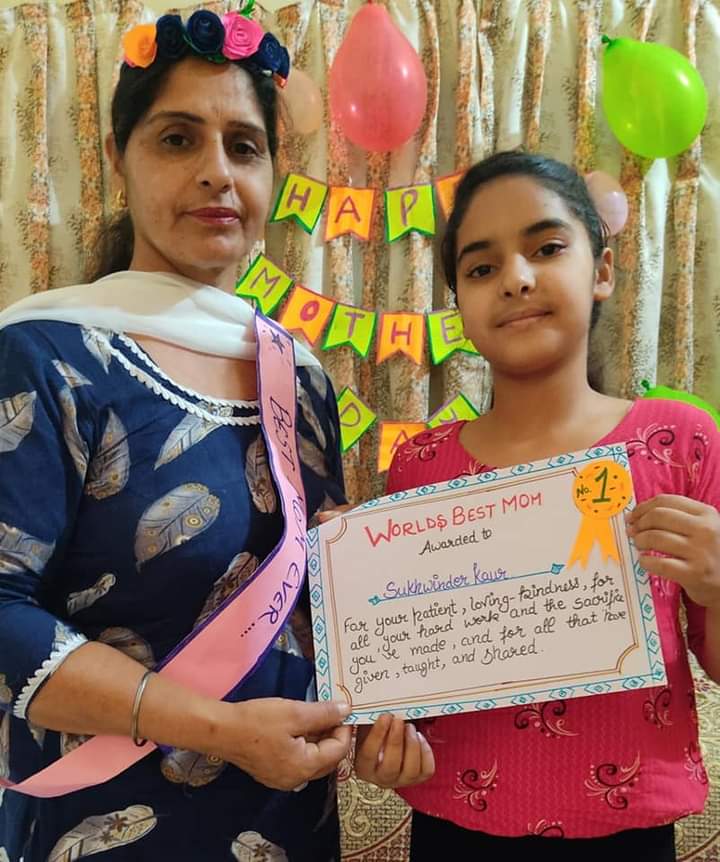 HAP
MOTHE
DA
BEST MOM EVER...
WORLDS BEST MOM
No. 1
Awarded to
Sukhwinder Kaur
For your patient, loving-kindness, for
all your hard work and the sacrifice
you've made, and for all that have
given, taught, and shared.